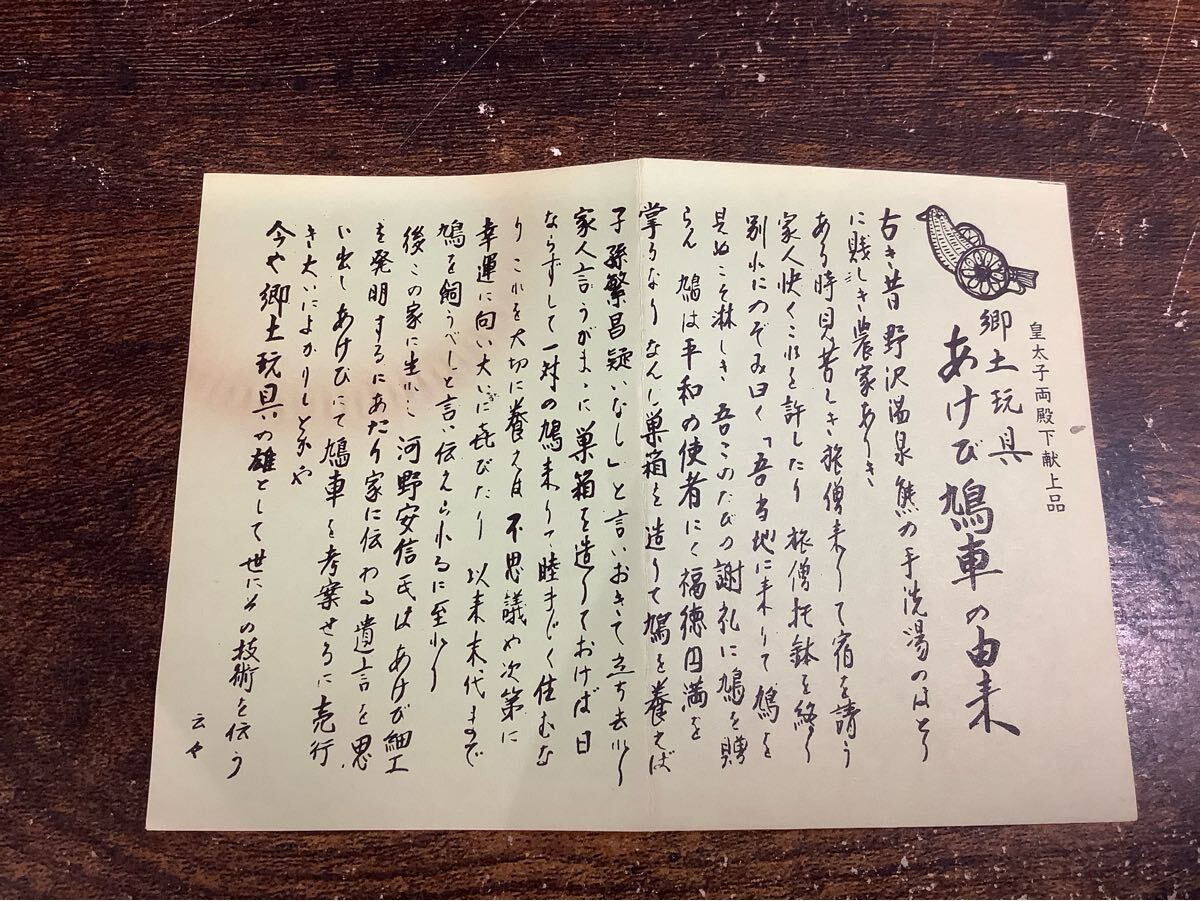 皇太子両殿下献上品
郷土玩具
あけび鳩車の由来
古き昔 野沢温泉 熊の手洗湯のほとり
に賎しき農家ありき
ある時見苦しき旅僧来りて宿を請う
家人快くこれを許したり 旅僧托鉢を終り
別れにのぞみ曰く「吾当地に来りて鳩を
見ぬこそ淋しき 吾このたびの謝礼に鳩を贈
らん 鳩は平和の使者にて福徳円満を
掌るなり なんじ巣箱を造りて鳩を養えば
子孫繁昌疑いなし」と言いおきて立ち去れり
家人言うがまゝに巣箱を造りておけば日
ならずして一対の鳩来りて睦まじく住むな
り これを大切に養えば 不思議や次第に
幸運に向い大いに喜びたり 以来末代まで
鳩を飼うべしと言い伝えらるるに至れり
後この家に生れし 河野安信氏は あけび細工
を発明するにあたり家に伝わる遺言を思
い出しあけびにて鳩車を考案せるに売行
き大いによかりしとかや
今や郷土玩具の雄として世にその技術を伝う
云々